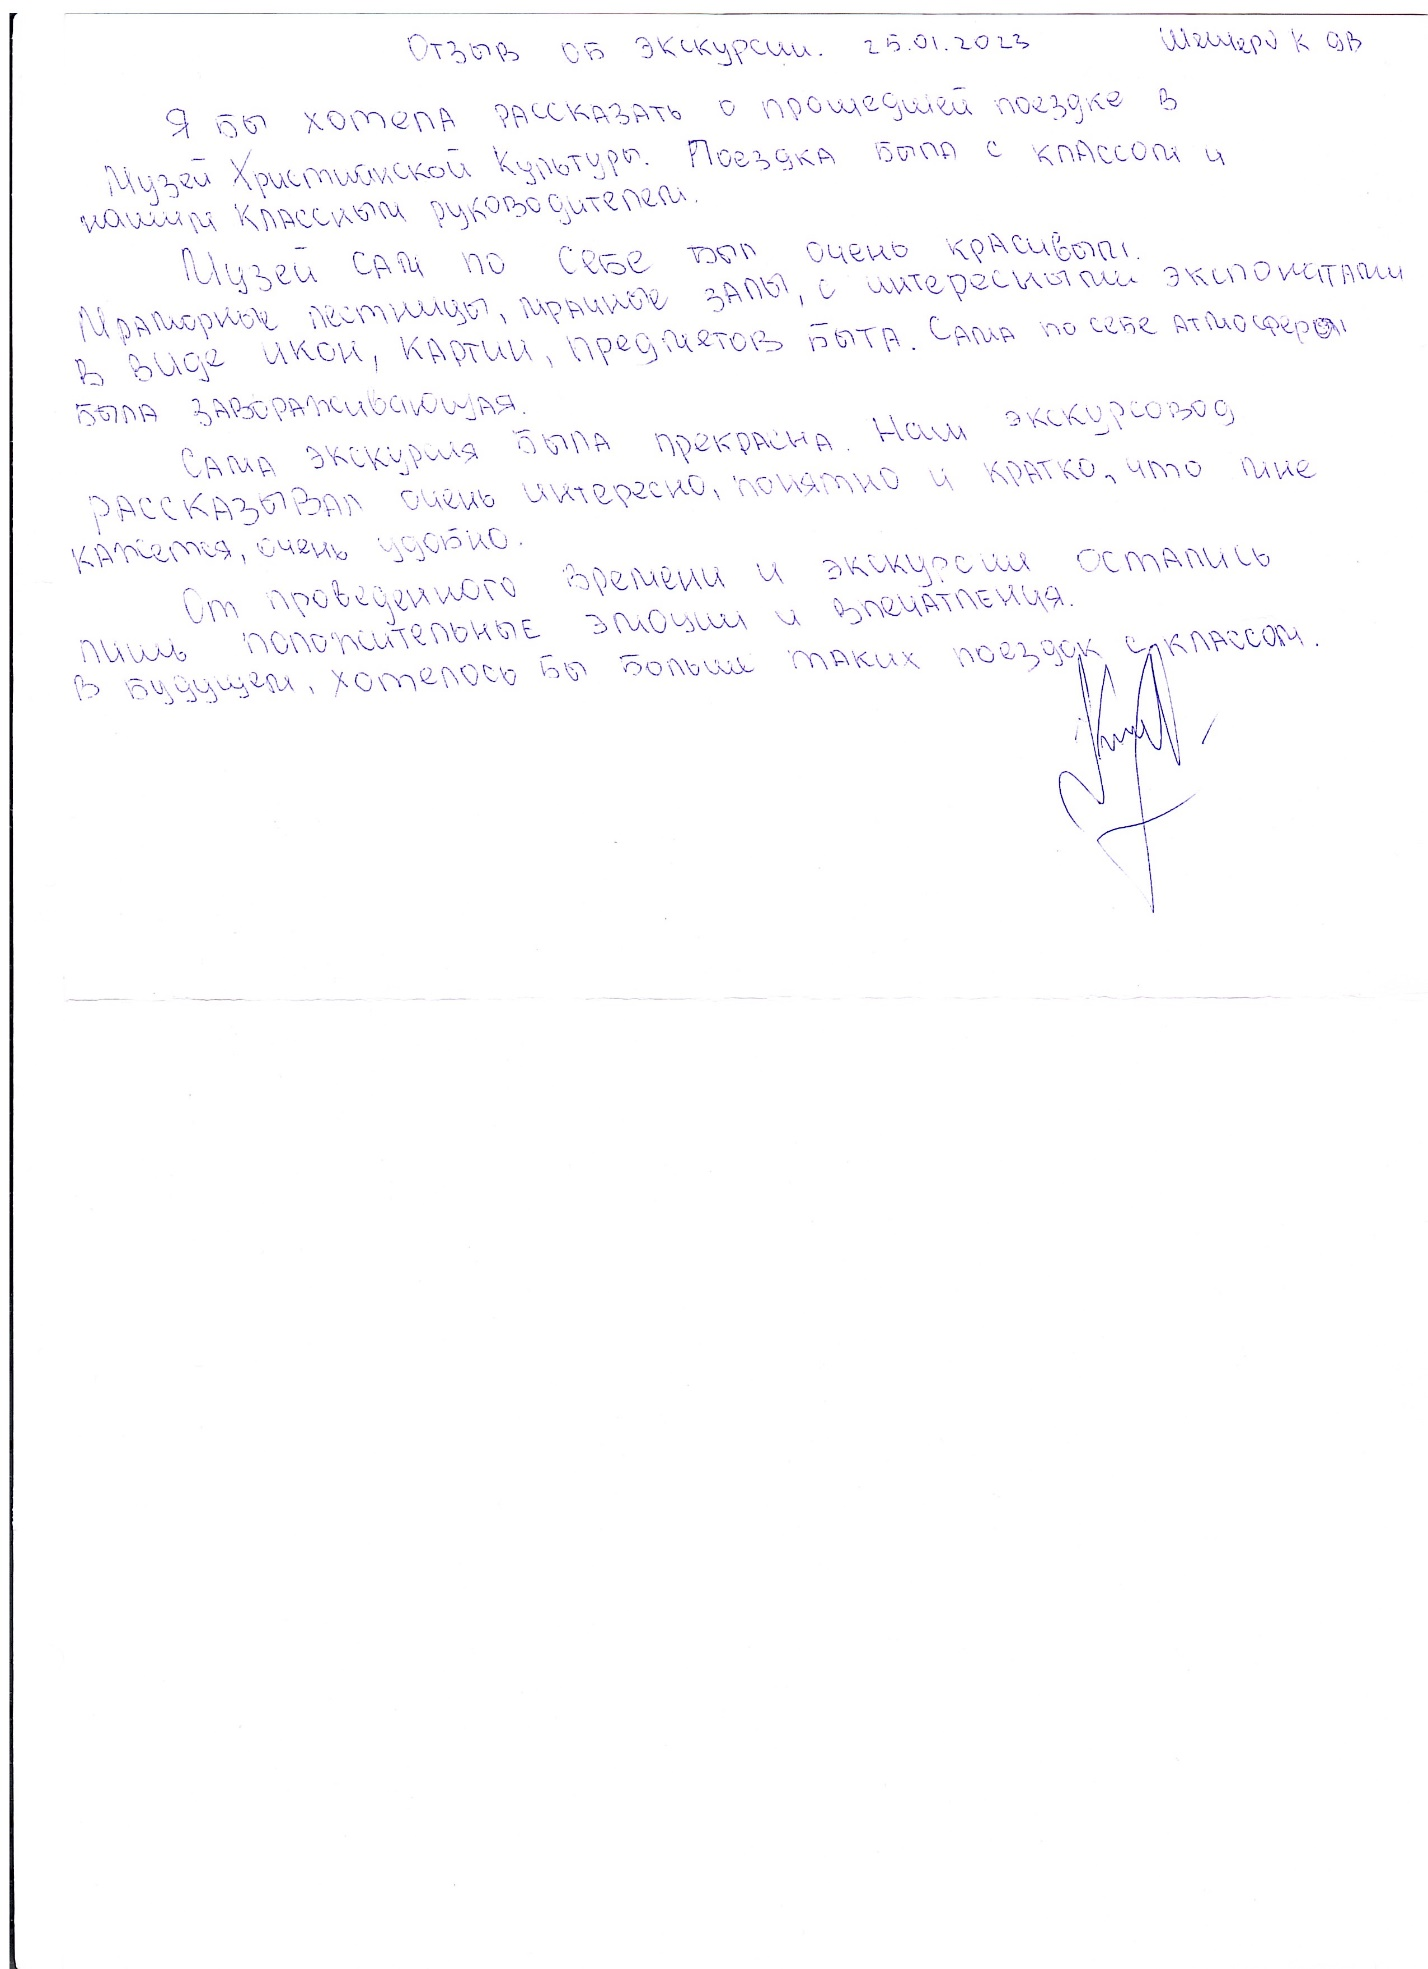 Отзыв об экскурсии. 25.01.2023 К 9В
Я бы хотела рассказать о прошедшей поездке в
Музей Христианской Культуры. Поездка была с классом и
нашим классным руководителем.
Музей сам по себе был очень красивым.
Мраморные лестницы, мрачные залы, с интересными экспонатами
в виде икон, картин, предметов быта. Сама по себе атмосфера
была завораживающая.
Сама экскурсия была прекрасна. Наш экскурсовод
рассказывал очень интересно, понятно и кратко, что мне
кажется, очень удобно.
От проведенного времени и экскурсии остались
лишь положительные эмоции и впечатления.
В будущем, хотелось бы больше таких поездок с классом.